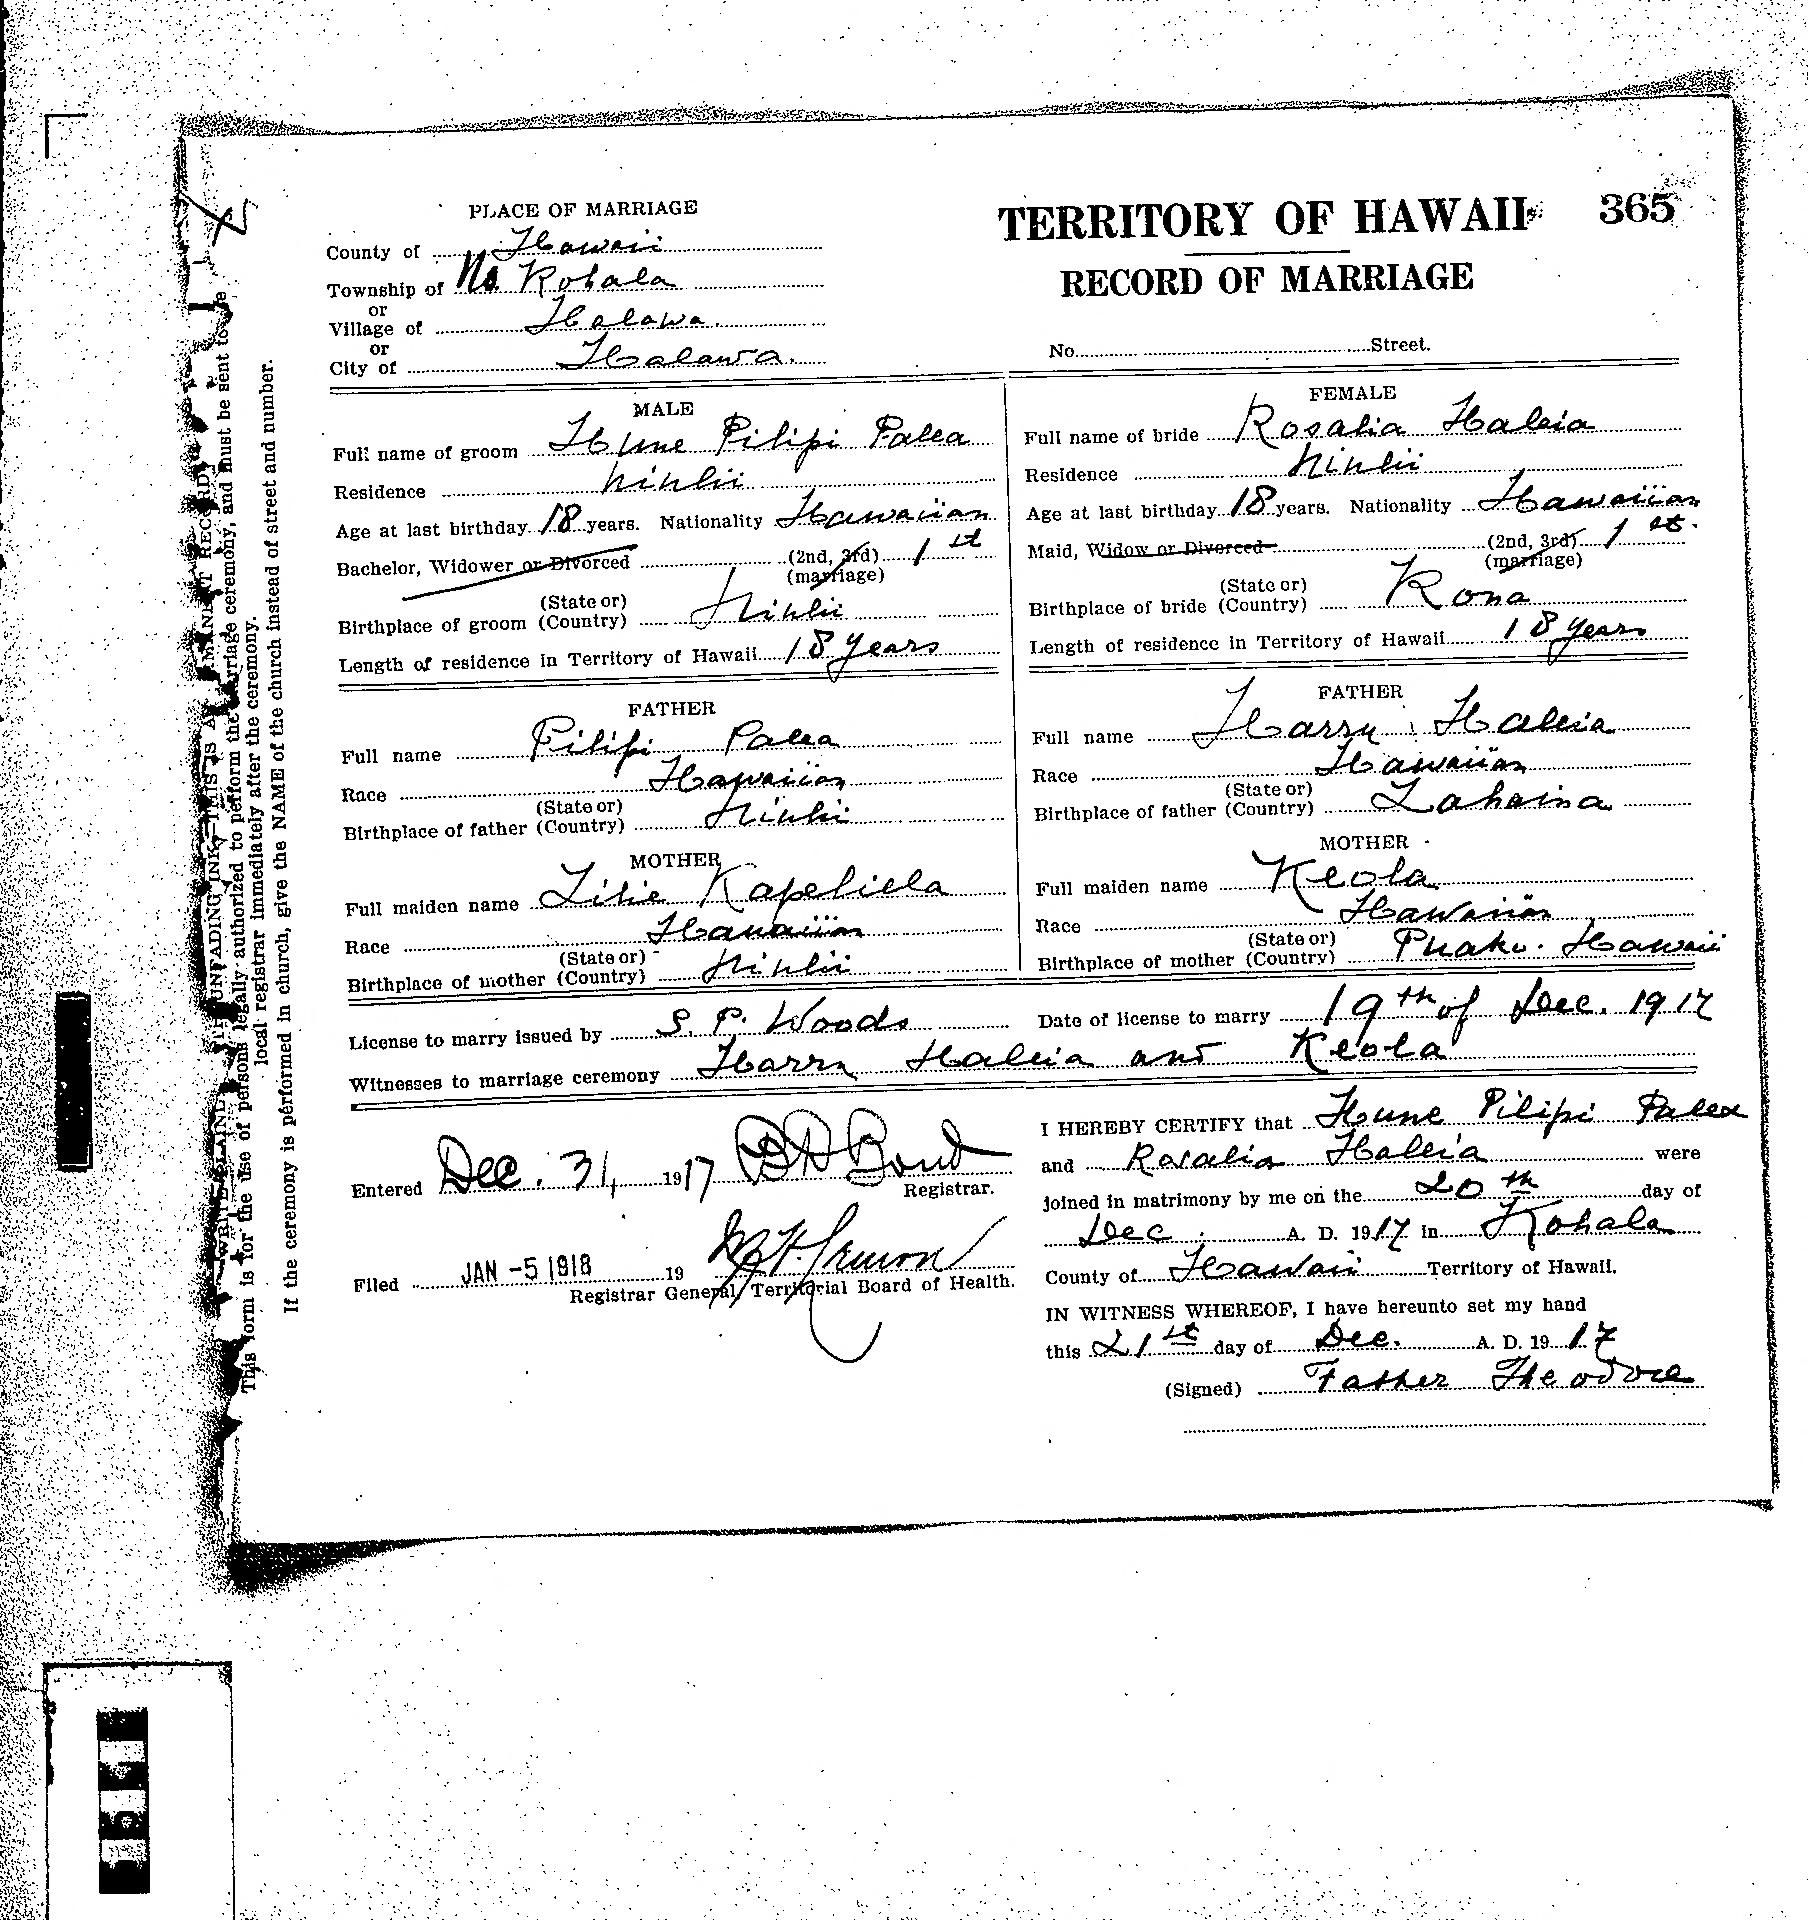 PLACE OF MARRIAGE
County of Hawaii
Township of No. Kohala
or
Village of Halawa.
or
City of Halawa.
TERRITORY OF HAWAII 365
RECORD OF MARRIAGE
No. Street.
MALE
Full name of groom Hune Pilipi Palea
Residence Niulii
Age at last birthday 18 years. Nationality Hawaiian
Bachelor, Widower or Divorced (2nd, 3rd) 1st
(marriage)
Birthplace of groom (State or) (Country) Niulii
Length of residence in Territory of Hawaii 18 years
FEMALE
Full name of bride Rosalia Haleia
Residence Niulii
Age at last birthday 18 years. Nationality Hawaiian
Maid, Widow or Divorced (2nd, 3rd) 1st.
(marriage)
Birthplace of bride (State or) (Country) Kona
Length of residence in Territory of Hawaii 18 years
FATHER
Full name Pilipi Palea
Race Hawaiian
Birthplace of father (State or) (Country) Niulii
MOTHER
Full maiden name Lilie Kapeliela
Race Hawaiian
Birthplace of mother (State or) (Country) Niulii
FATHER
Full name Harry Haleia
Race Hawaiian
Birthplace of father (State or) (Country) Lahaina
MOTHER
Full maiden name Keola
Race Hawaiian
Birthplace of mother (State or) (Country) Puako. Hawaii
License to marry issued by S. P. Woods Date of license to marry 19th of Dec. 1917
Witnesses to marriage ceremony Harry Haleia and Keola
Entered Dec. 31, 1917 B D Bond
Registrar.
Filed JAN -5 1918 19
Registrar General, Territorial Board of Health.
I HEREBY CERTIFY that Hune Pilipi Palea
and Rosalia Haleia were
joined in matrimony by me on the 20th day of
Dec. A. D. 1917 in Kohala
County of Hawaii Territory of Hawaii.
IN WITNESS WHEREOF, I have hereunto set my hand
this 21st day of Dec. A. D. 1917
(Signed) Father Theodore
UNFADING INK—THIS IS A PERMANENT RECORD
This form is for the use of persons legally authorized to perform the marriage ceremony, and must be sent to the
local registrar immediately after the ceremony.
If the ceremony is performed in church, give the NAME of the church instead of street and number.